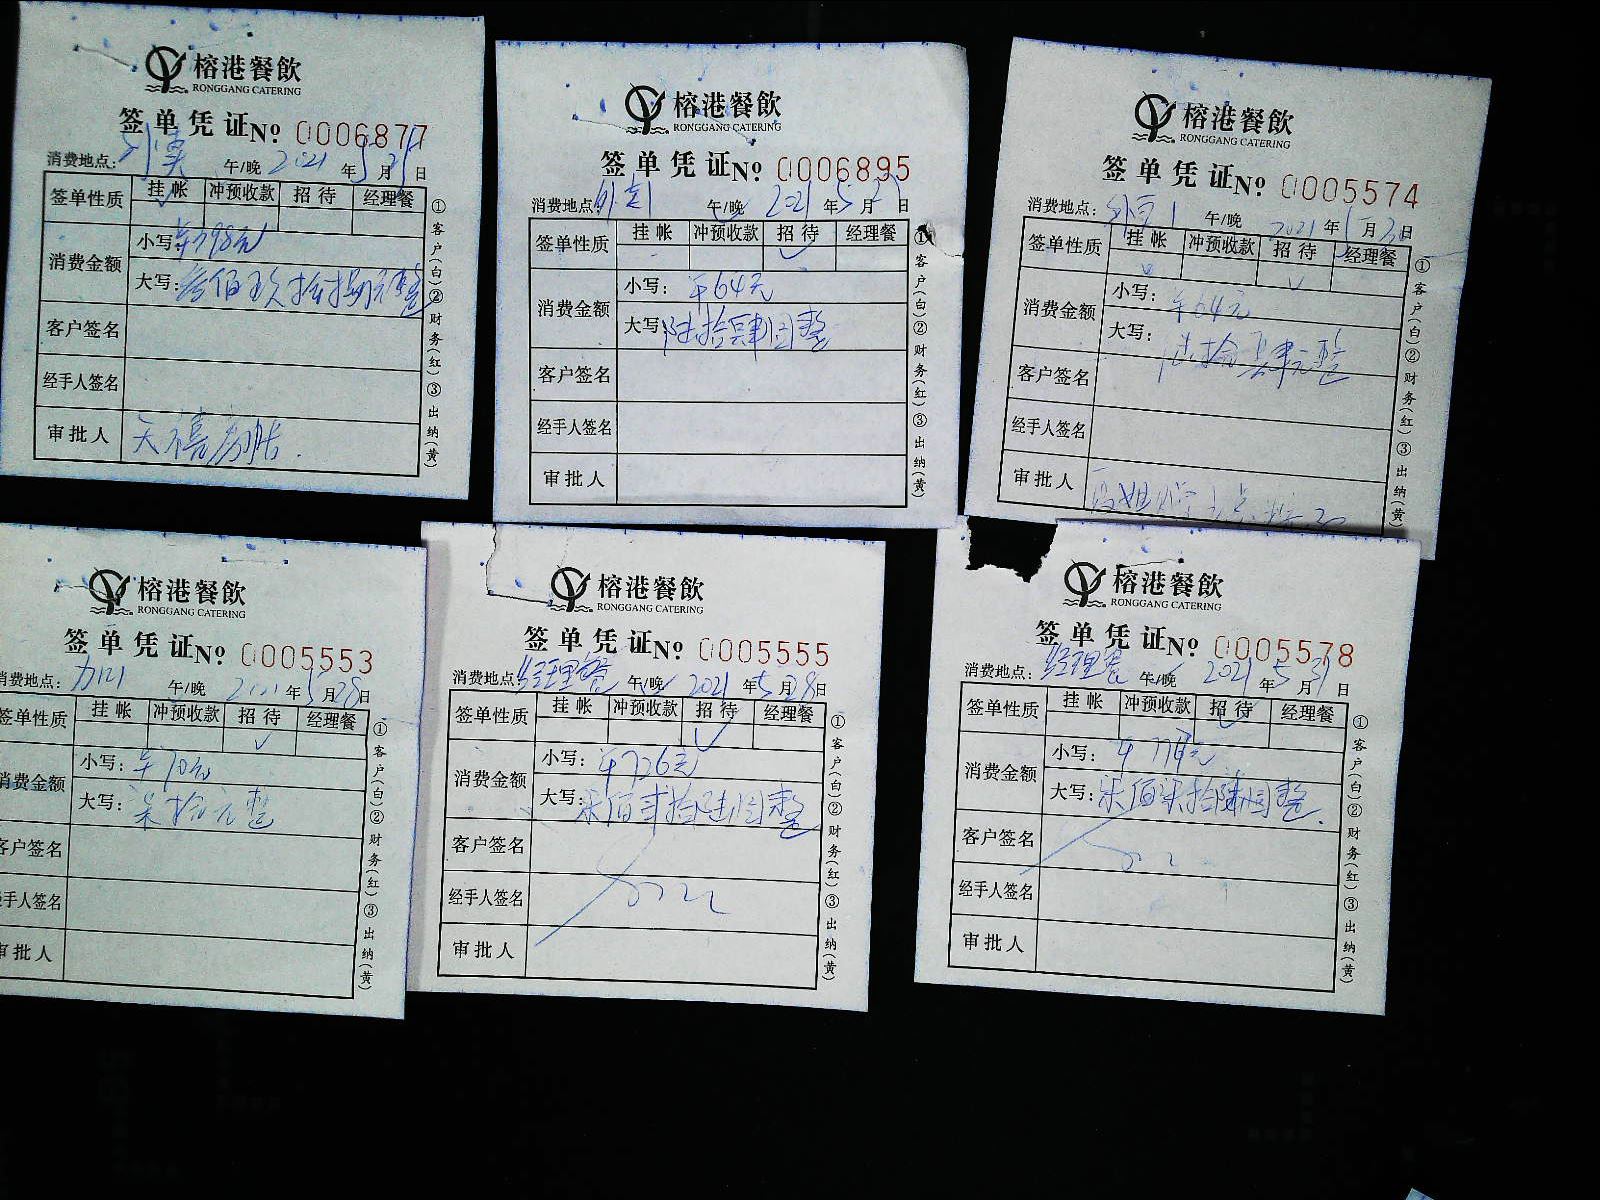 榕港餐飲
RONGGANG CATERING
签单凭证 № 0006877
消费地点: 午/晚 2021 年 5 月 日
签单性质 挂帐 冲预收款 招待 经理餐
消费金额
小写: ¥398元
大写: 叁佰玖拾捌元整
客户签名
经手人签名
审批人
①客户(白)②财务(红)③出纳(黄)
榕港餐飲
RONGGANG CATERING
签单凭证 № 0006895
消费地点: 外卖1 午/晚 2021 年 5 月 日
签单性质 挂帐 冲预收款 招待 经理餐
消费金额
小写: ¥64元
大写: 陆拾肆圆整
客户签名
经手人签名
审批人
①客户(白)②财务(红)③出纳(黄)
榕港餐飲
RONGGANG CATERING
签单凭证 № 0005574
消费地点: 午/晚 2021 年 月 30 日
签单性质 挂帐 冲预收款 招待 经理餐
消费金额
小写: ¥64元
大写: 陆拾肆元整
客户签名
经手人签名
审批人
①客户(白)②财务(红)③出纳(黄)
榕港餐飲
RONGGANG CATERING
签单凭证 № 0005553
消费地点: 午/晚 2021 年 5 月 28 日
签单性质 挂帐 冲预收款 招待 经理餐
消费金额
小写: ¥70元
大写: 柒拾元整
客户签名
经手人签名
审批人
①客户(白)②财务(红)③出纳(黄)
榕港餐飲
RONGGANG CATERING
签单凭证 № 0005555
消费地点: 经理餐 午/晚 2021 年 5 月 28 日
签单性质 挂帐 冲预收款 招待 经理餐
消费金额
小写: ¥726元
大写: 柒佰贰拾陆圆整
客户签名
经手人签名
审批人
①客户(白)②财务(红)③出纳(黄)
榕港餐飲
RONGGANG CATERING
签单凭证 № 0005578
消费地点: 经理餐 午/晚 2021 年 5 月 31 日
签单性质 挂帐 冲预收款 招待 经理餐
消费金额
小写: ¥776元
大写: 柒佰柒拾陆圆整.
客户签名
经手人签名
审批人
①客户(白)②财务(红)③出纳(黄)